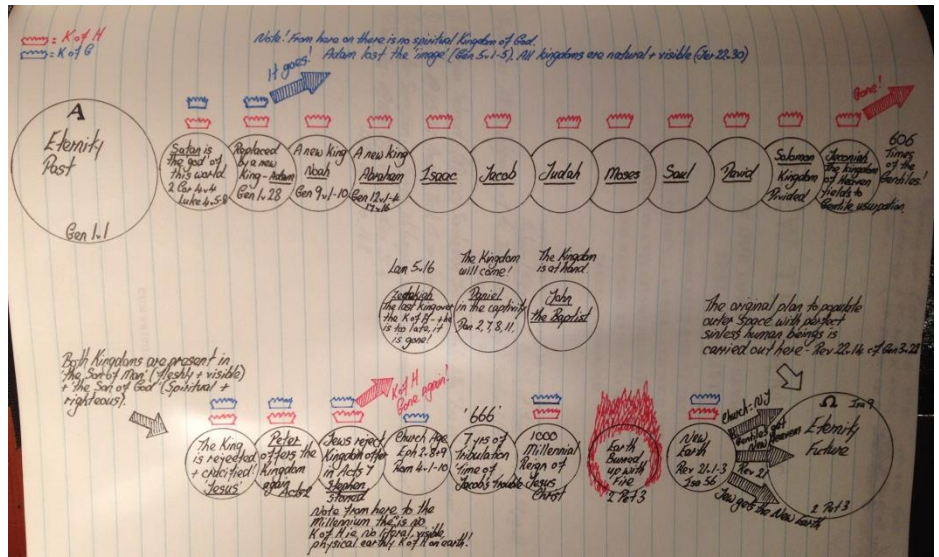 = K of H
= K of G
Note! From here on there is no spiritual Kingdom of God.
Adam lost the 'image' (Gen 5v.1-5). All kingdoms are natural + visible (Jer 22.30)
It goes!
Gone!
A
Eternity
Past
Gen 1v.1
Satan is
the god of
this world
2 Cor 4v4
Luke 4v.5-8
Replaced
by a new
King - Adam
Gen 1v.28
A new King
Noah
Gen 9v.1-10
A new King
Abraham
Gen 12v.1-4
17v.16
Isaac
Jacob
Judah
Moses
Saul
David
Solomon
Kingdom
Divided
Jeconiah
the kingdom
of Heaven
yields to
Gentile usurpation
606
Times
of the
Gentiles!
Lam 5v.16
Zedekiah
The last King over
the K of H - the
is too late, it
is gone!
The Kingdom
will come!
Daniel
in the captivity
Dan 2,7,8,11.
The Kingdom
is at hand.
John
the Baptist
The original plan to populate
outer space with perfect
sinless human beings is
carried out here - Rev 22v.14 cf Gen 3v.22
Both Kingdoms are present in
'the Son of Man' (fleshly + visible)
+ 'the Son of God' (Spiritual +
righteous).
The King
is rejected
+ crucified!
'Jesus'
Peter
offers the
Kingdom
again
Acts 2
K of H
Gone again!
Jews reject
Kingdom offer
in Acts 7
Stephen
stoned
Church Age
Eph 2v.8+9
Rom 4v.1-10
'666'
7 yrs of
Tribulation
'Time of
Jacob's trouble'
1000
Millennial
Reign of
Jesus
Christ
Earth
burned
up with
Fire
2 Pet 3
New
Earth
Rev 21v.1-3
Isa 56
Church = NJ
Gentiles get
New Heaven
Rev 21
Jew gets the New Earth
Ω Isa 9
Eternity
Future
2 Pet 3
Note from here to the
Millennium the is no
K of H ie, no literal, visible,
physical earthly K of H on earth!